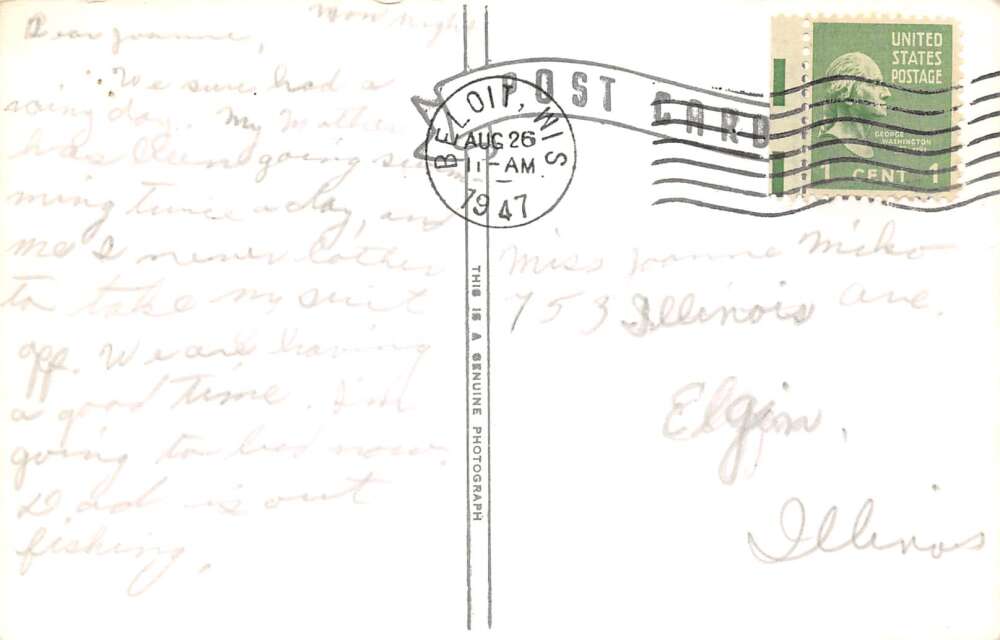 Mon night
Dear Joanne,
We sure had a
day. My Mother
has been going swim-
ming twice a day, and
me I never bother
to take my suit
off. We are having
a good time. I'm
going to bed now.
Dad is out
fishing.
POST CARD
BELOIT, WIS
AUG 26
11-AM
1947
UNITED
STATES
POSTAGE
GEORGE
WASHINGTON
1 CENT 1
THIS IS A GENUINE PHOTOGRAPH
Miss Joanne Miko
753 Illinois Ave.
Elgin,
Illinois